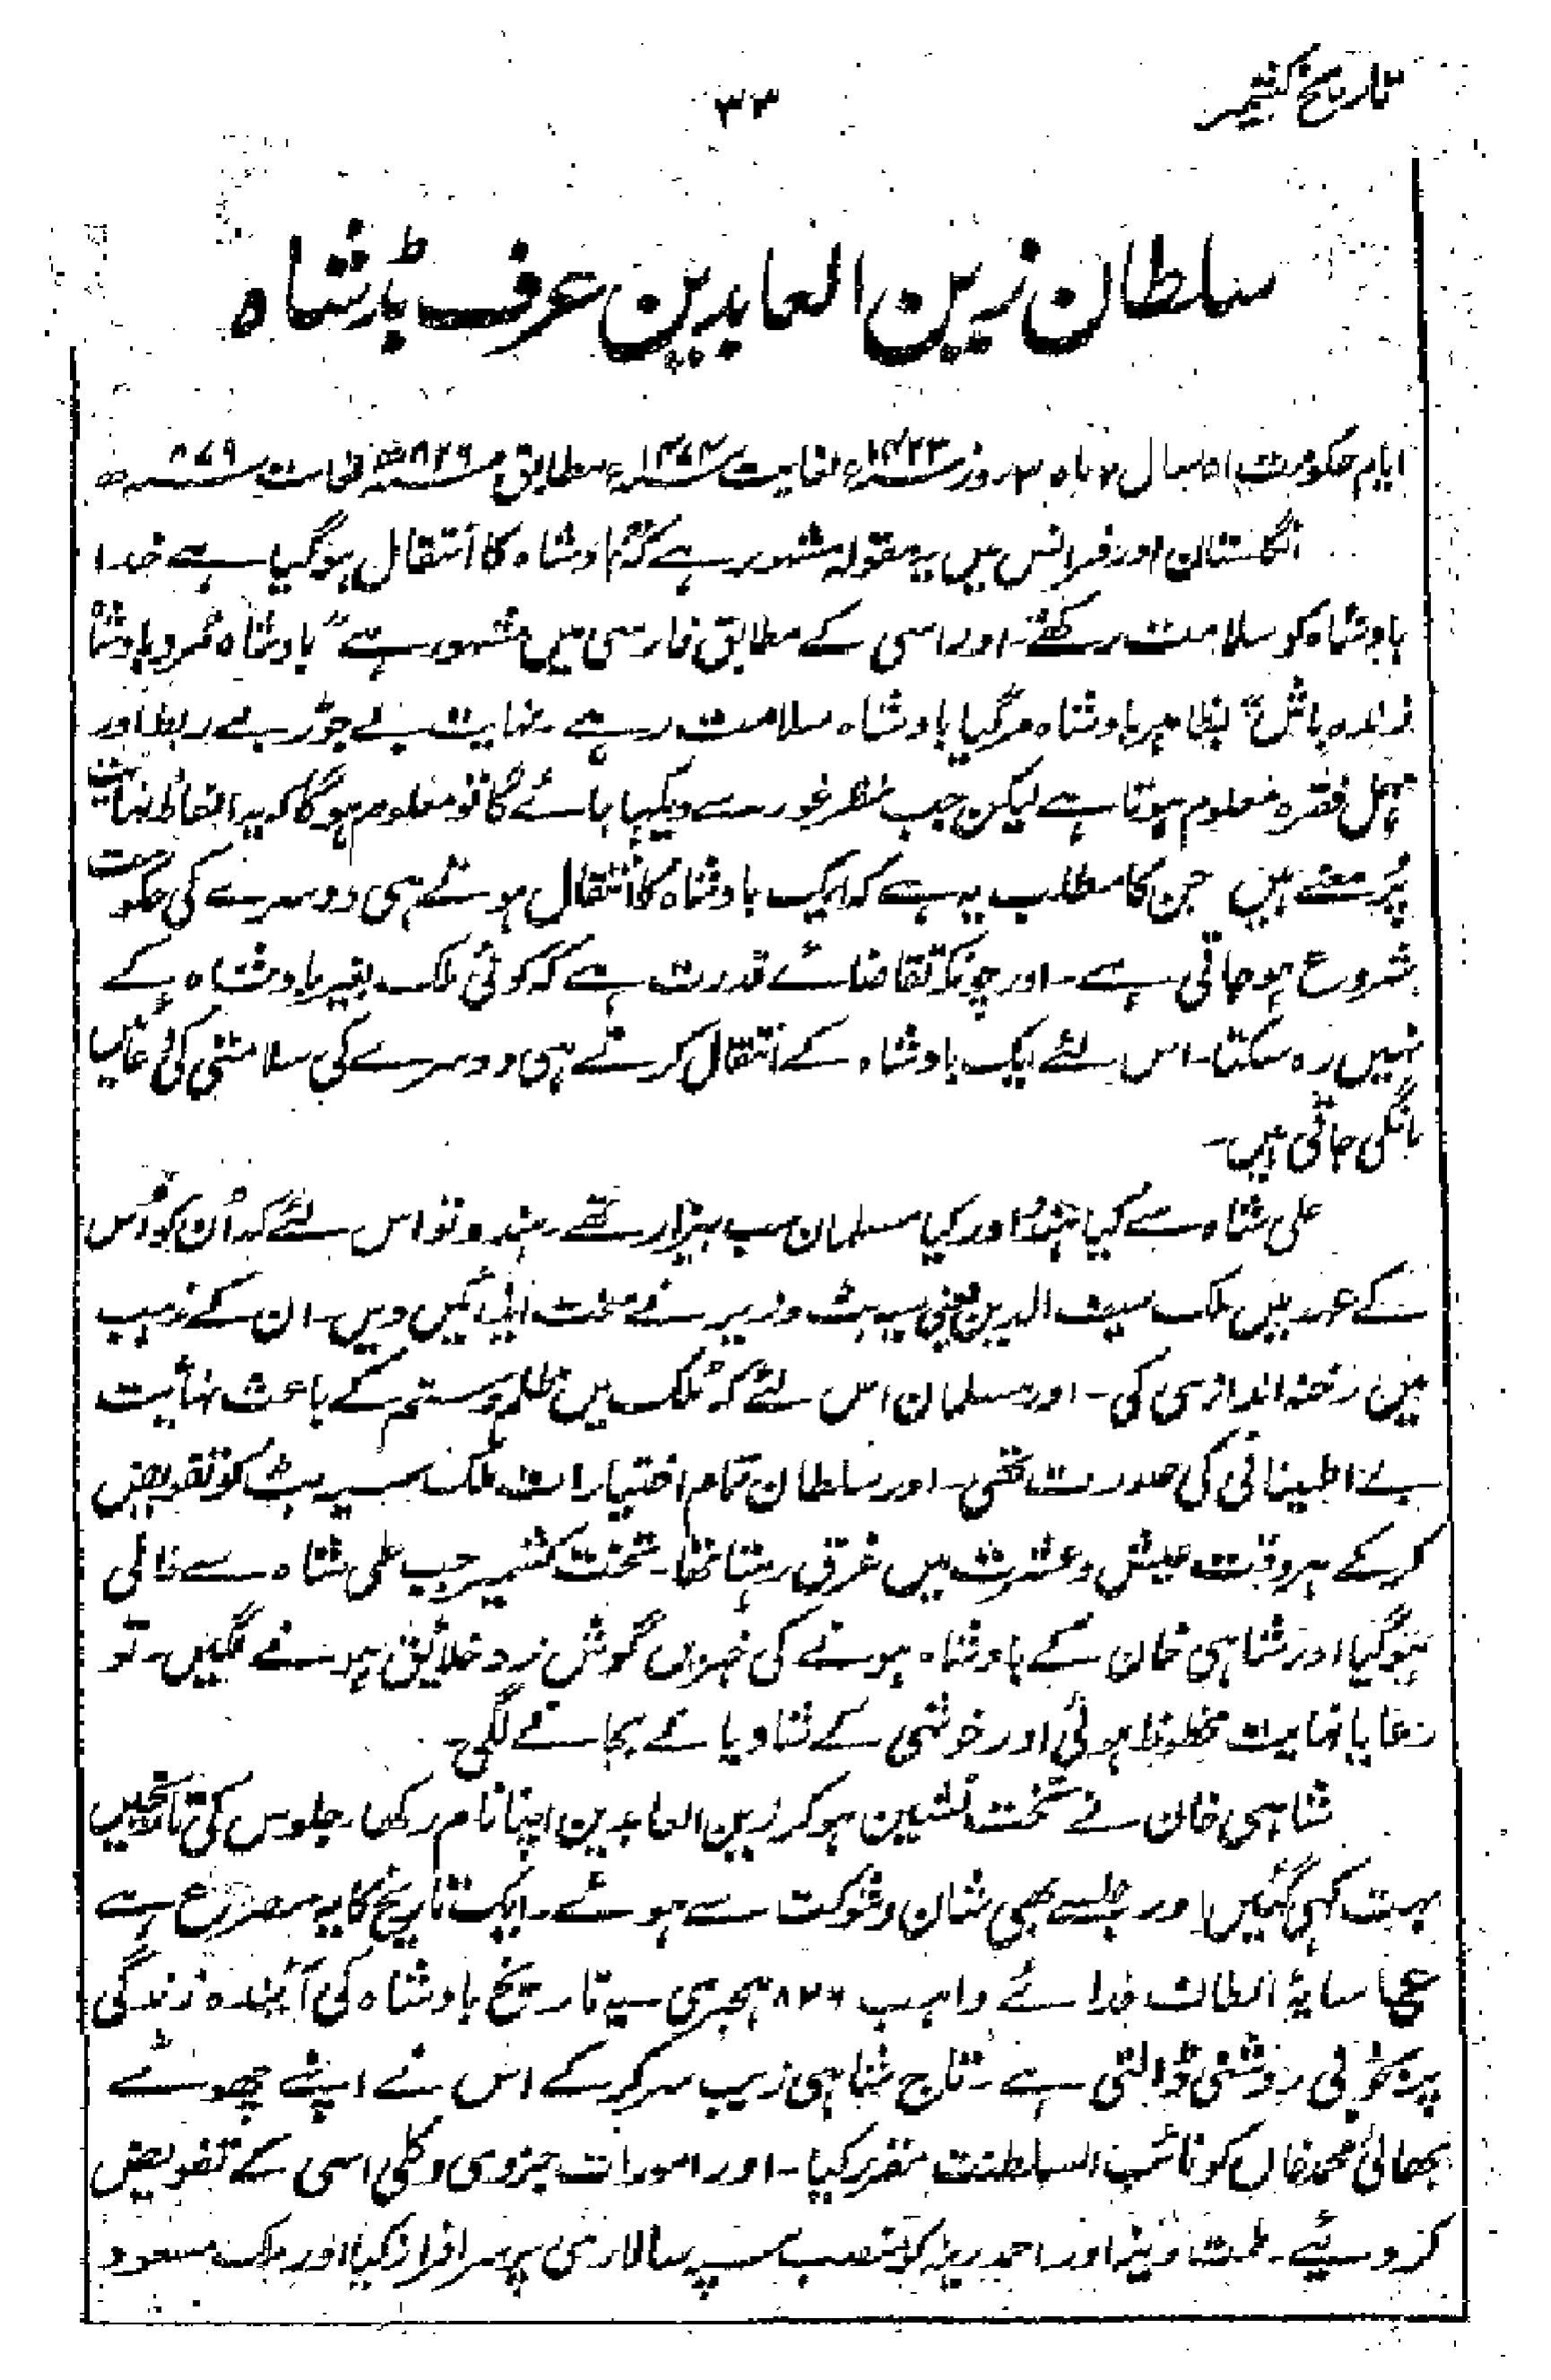 تاریخ کشمیر
۳۳
سلطان زین العابدین عرف بڈشاہ
ایام حکومت ۵۱ سال ۲ ماہ ۳ روز ۱۴۲۳ء لغایت ۱۴۷۴ء مطابق ۸۲۶ھ لغایت ۸۷۹ھ
انگلستان اور فرانس میں یہ مقولہ مشہور ہے کہ بادشاہ کا انتقال ہوگیا ہے خدا
بادشاہ کو سلامت رکھے۔ اور اسی کے مطابق فارسی میں مشہور ہے "بادشاہ مُرد بادشاہ
زندہ باش" بظاہر بادشاہ مرگیا بادشاہ سلامت رہے۔ نہایت بے جوڑ بے ربط اور
مہمل فقرہ معلوم ہوتا ہے لیکن جب بنظر غور سے دیکہا جائے گا تو معلوم ہوگا کہ یہ الفاظ نہایت
پُر معنے ہیں جن کا مطلب یہ ہے کہ ایک بادشاہ کا انتقال ہوتے ہی دوسرے کی حکومت
شروع ہوجاتی ہے۔ اور چونکہ تقاضائے قدرت ہے کہ کوئی ملک بغیر بادشاہ کے
نہیں رہ سکتا۔ اس لئے ایک بادشاہ کے انتقال کرتے ہی دوسرے کی سلامتی کی دُعائیں
مانگی جاتی ہیں۔
علی شاہ سے کیا ہندو اور کیا مسلمان سب بیزار تھے۔ ہندو تو اس لئے کہ اُن کو اُس
کے عہد میں ملک سیف الدین یعنی سیہ بٹ وزیر نے سخت ایذائیں دیں۔ ان کے مذہب
میں رخنہ اندازی کی۔ اور مسلمان اس لئے کہ مُلک میں ظلم و ستم کے باعث نہائیت
بے اطمینانی کی صورت تھی۔ اور سلطان تمام اختیارات ملک سیہ بٹ کو تفویض
کرکے ہر وقت عیش و عشرت میں غرق رہتا تھا۔ تخت کشمیر جب علی شاہ سے خالی
ہوگیا اور شاہی خان کے بادشاہ ہونے کی خبریں گوش زد خلائق ہونے لگیں۔ تو
رعایا نہایت محظوظ ہوئی اور خوشی کے شادیانے بجانے لگی۔
شاہی خان نے تخت نشین ہوکر زین العابدین اپنا نام رکھا۔ جلوس کی تاریخیں
بہت کہی گئیں اور جلسے بھی شان و شوکت سے ہوئے۔ ایک تاریخ کا یہ مصرع ہے
ع سایۂ الطاف خدائے واہب ۸۲۶ ہجری یہ تاریخ بادشاہ کی آئندہ زندگی
پر بخوبی روشنی ڈالتی ہے۔ تاج شاہی زیب سر کرکے اس نے اپنے چھوٹے
بھائی محمد خاں کو نائب السلطنت مقرر کیا۔ اور امورات جزوی و کلی اسی کے تفویض
کردئیے۔ اور احمد رینہ کو منصب سپہ سالاری پر سرافراز کیا اور ملک مسعود